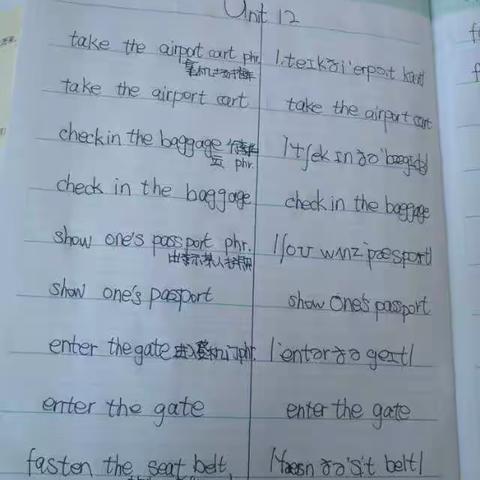 Unit 12
take the airport cart phr. /teɪk ðə ˈerpɔt kɑrt/
take the airport cart take the airport cart
check in the baggage phr. /tʃek ɪn ðə ˈbægɪdʒ/
check in the baggage check in the baggage
show one's passport phr. /ʃoʊ wʌnz ˈpæspɔrt/
出示某人护照
show one's passport show one's passport
enter the gate 进入登机门 phr. /ˈentər ðə geɪt/
enter the gate enter the gate
fasten the seat belt